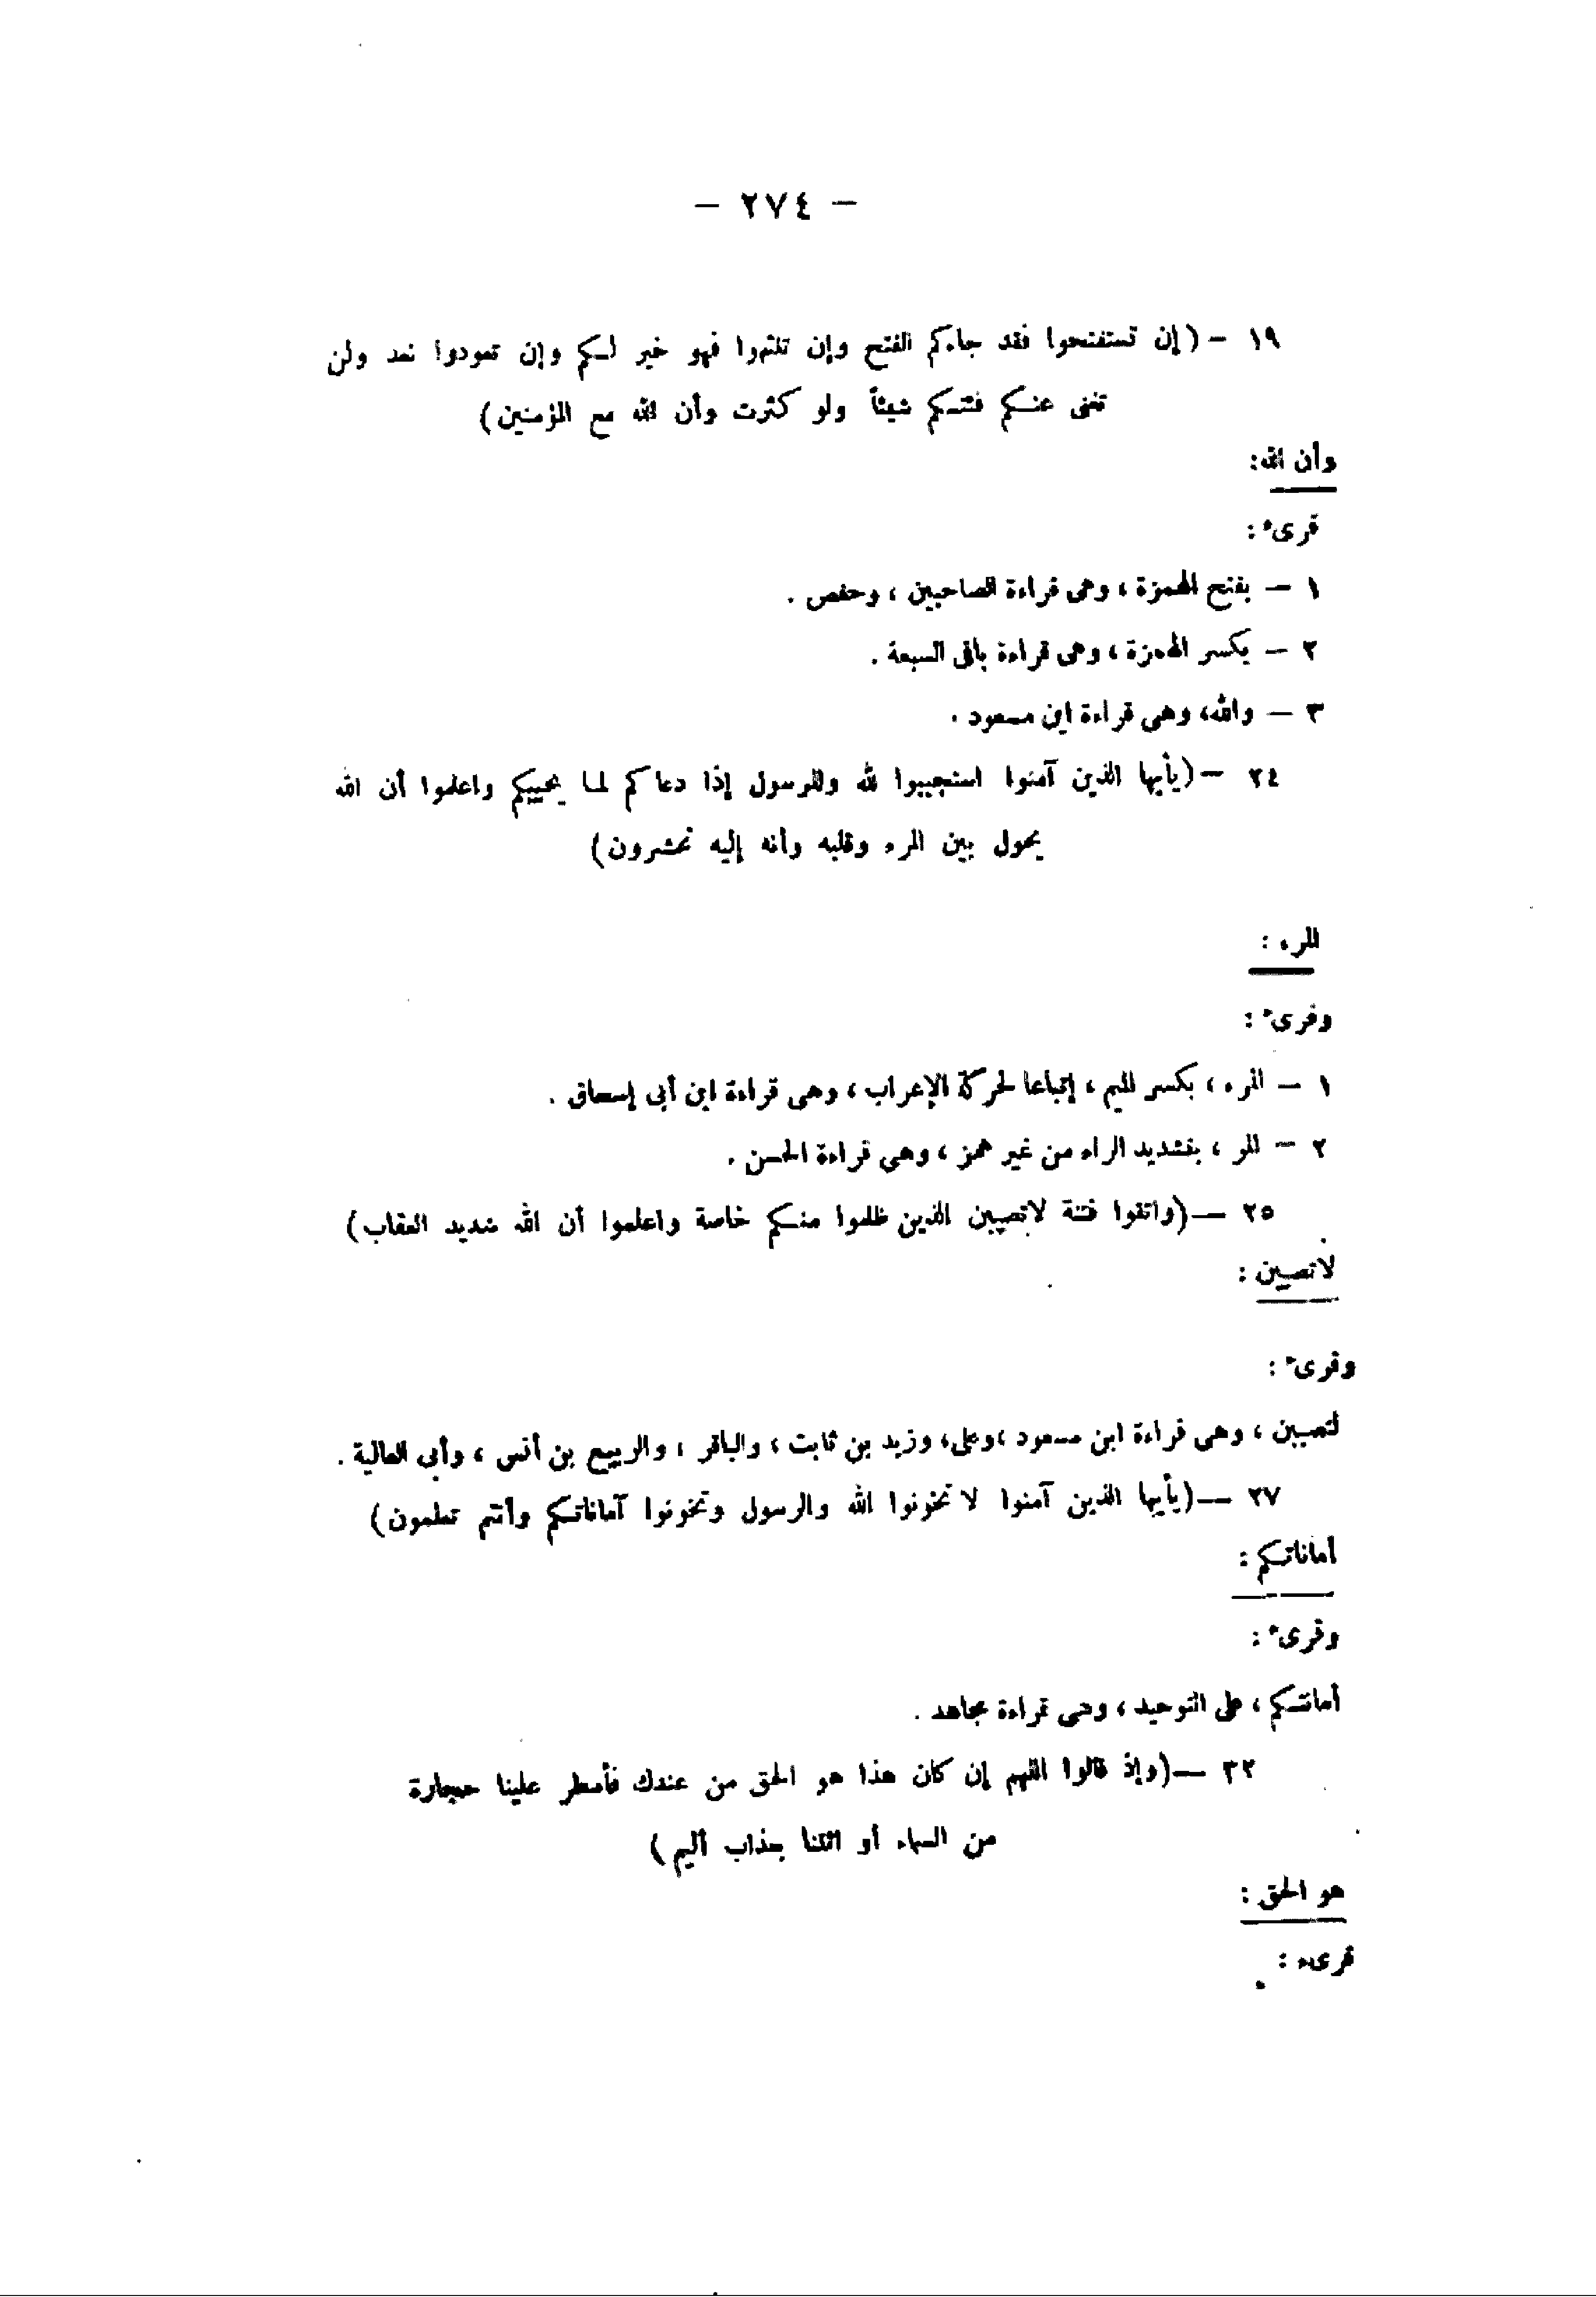 — ٢٧٤ —
١٩ — (إن تستفتحوا فقد جاءكم الفتح وإن تنتهوا فهو خير لكم وإن تعودوا نعد ولن
تغنى عنكم فئتكم شيئاً ولو كثرت وأن الله مع المؤمنين)
وأن الله:
قرىء:
١ — بفتح الهمزة، وهى قراءة الصاحبين، وحفص.
٢ — بكسر الهمزة، وهى قراءة باقى السبعة.
٣ — والله، وهى قراءة ابن مسعود.
٢٤ — (يأيها الذين آمنوا استجيبوا لله وللرسول إذا دعاكم لما يحييكم واعلموا أن الله
يحول بين المرء وقلبه وأنه إليه تحشرون)
المرء:
وقرىء:
١ — المرء، بكسر الميم، إتباعا لحركة الإعراب، وهى قراءة ابن أبى إسحاق.
٢ — المر، بتشديد الراء من غير همز، وهى قراءة الحسن.
٢٥ — (واتقوا فتنة لاتصيبن الذين ظلموا منكم خاصة واعلموا أن الله شديد العقاب)
لاتصيبن:
وقرىء:
لتصيبن، وهى قراءة ابن مسعود، وعلى، وزيد بن ثابت، والباقر، والربيع بن أنس، وأبى العالية.
٢٧ — (يأيها الذين آمنوا لا تخونوا الله والرسول وتخونوا آماناتكم وأنتم تعلمون)
أماناتكم:
وقرىء:
أمانتكم، على التوحيد، وهى قراءة مجاهد.
٣٢ — (وإذ قالوا اللهم إن كان هذا هو الحق من عندك فأمطر علينا حجارة
من السماء أو ائتنا بعذاب أليم)
هو الحق:
قرىء: